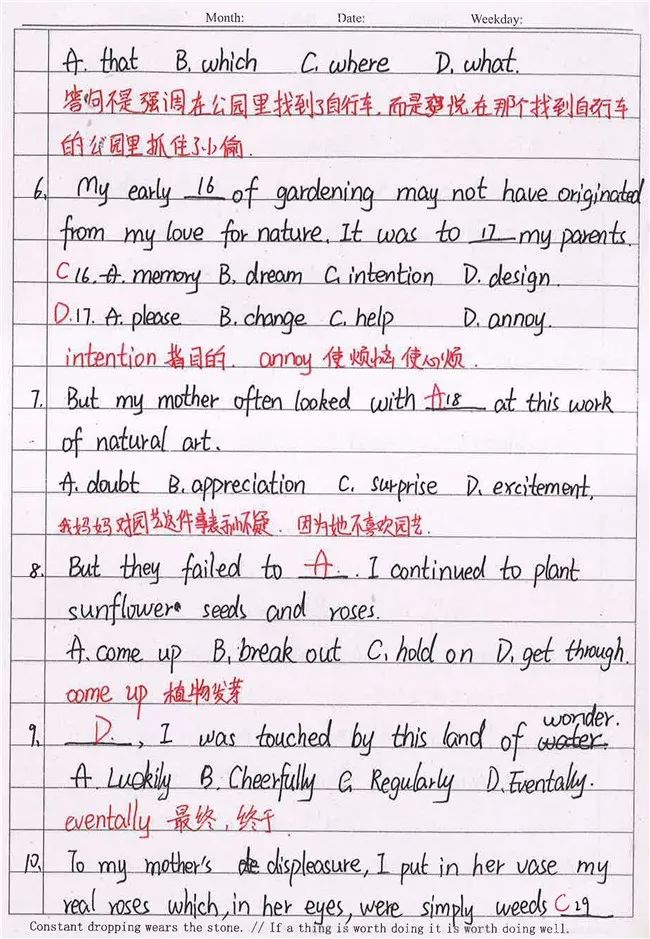 Month: Date: Weekday:
A. that B. which C. where D. what.
答问不是强调在公园里找到了自行车,而是要说在那个找到自行车
的公园里抓住了小偷.
6. My early 16 of gardening may not have originated
from my love for nature. It was to 17 my parents.
C 16. A. memory B. dream C. intention D. design.
D. 17. A. please B. change C. help D. annoy.
intention 指目的. annoy 使烦恼 使心烦.
7. But my mother often looked with A 18 at this work
of natural art.
A. doubt B. appreciation C. surprise D. excitement.
我妈妈对园艺这件事表示怀疑. 因为她不喜欢园艺.
8. But they failed to A. I continued to plant
sunflower seeds and roses.
A. come up B. break out C. hold on D. get through.
come up 植物发芽
wonder.
9. D. , I was touched by this land of water.
A. Luckily B. Cheerfully C. Regularly D. Eventally.
eventally 最终,终于.
10. To my mother's displeasure, I put in her vase my
real roses which, in her eyes, were simply weeds C 29
Constant dropping wears the stone. // If a thing is worth doing it is worth doing well.